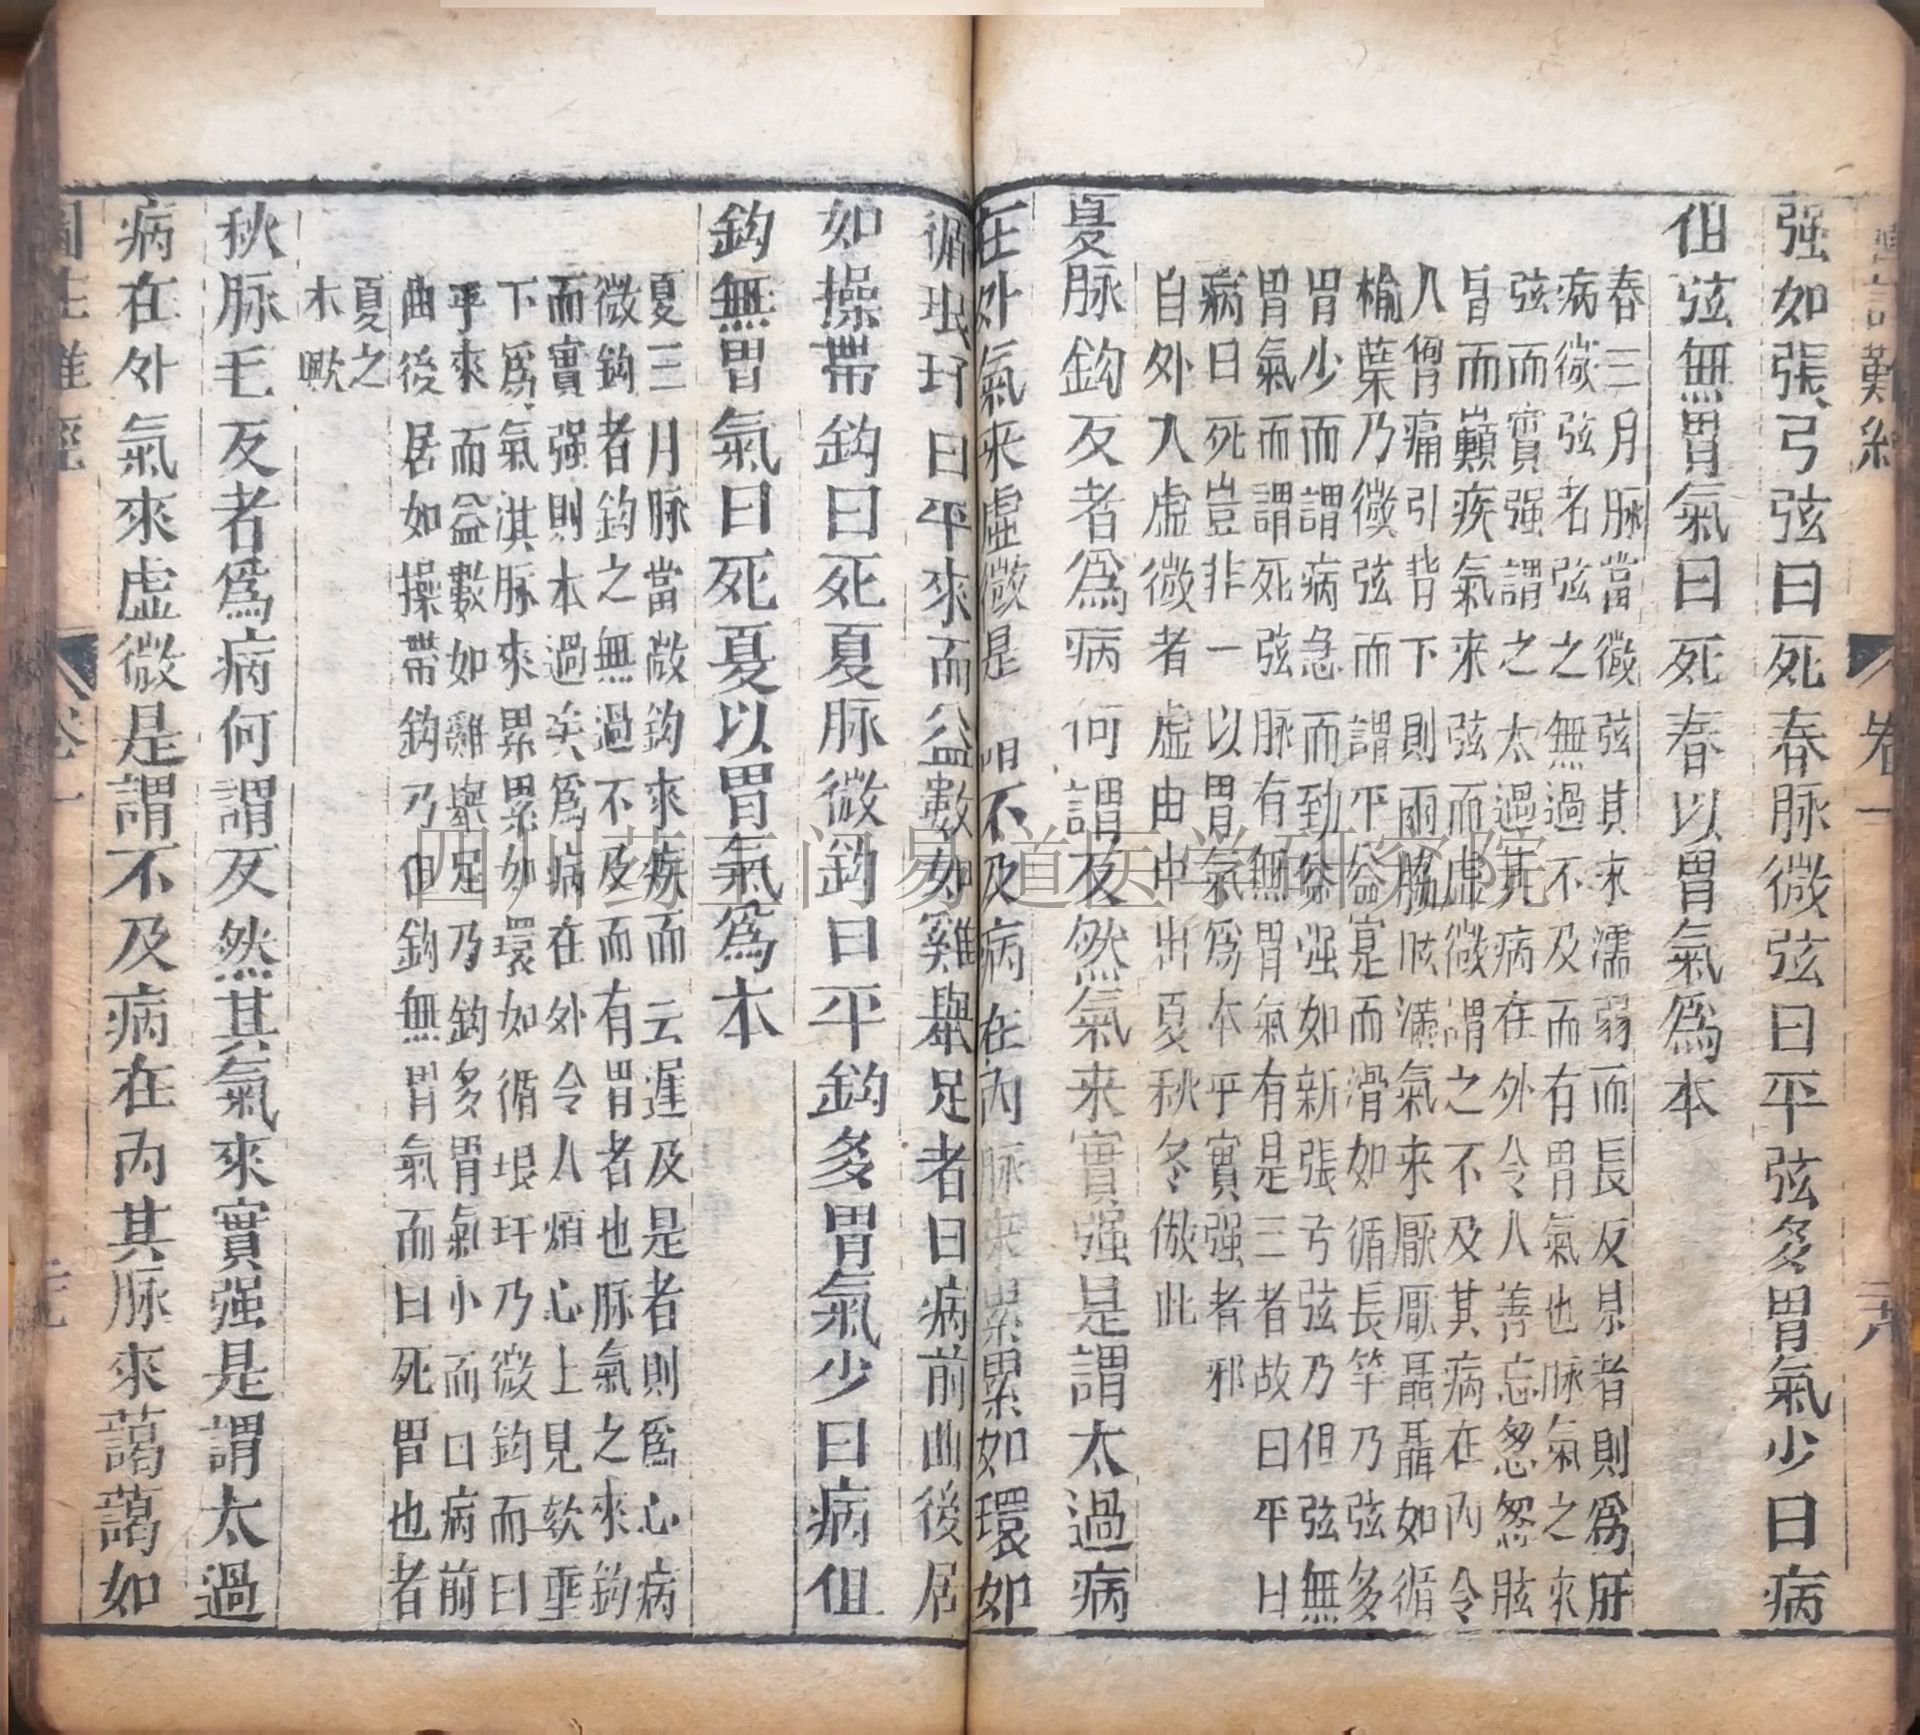 難經
卷一
强如張弓弦曰死春脉微弦曰平弦多胃氣少曰病
但弦無胃氣曰死春以胃氣爲本
春三月脉當微弦其來濡弱而長反是者則爲肝
病微弦者弦之無過不及而有胃氣也脉氣之來
弦而實强謂之太過其病在外令人善忘忽忽眩
冒而巔疾氣来弦而虛微謂之不及其病在內令
人胷痛引背下則兩脇胠滿氣来厭厭聶聶如循
榆葉乃微弦而謂平益實而滑如循長竿乃弦多
胃少而謂病急而勁益强如新張弓弦乃但弦無
胃氣而謂死弦脉有無胃氣有是三者故曰平曰
病曰死豈非一以胃氣爲本乎實强者邪
自外入虛微者虛由中出夏秋冬倣此
夏脉鈎反者爲病何謂反然氣来實强是謂太過病
在外氣来虛微是謂不及病在內脉来累累如環如
循琅玕曰平來而益數如雞舉足者曰病前曲後居
如操帶鈎曰死夏脉微鈎曰平鈎多胃氣少曰病但
鈎無胃氣曰死夏以胃氣爲本
夏三月脉當微鈎來疾而云遲及是者則爲心病
微鈎者鈎之無過不及而有胃者也脉氣之來鈎
而實强則本過矣爲病在外令人煩心上見欬唾
下爲氣淇脉來累累如環如循垠玕乃微鈎而曰
平來而益數如雞舉足乃鈎多胃氣小而曰病前
曲後居如操帶鈎乃但鈎無胃氣而曰死胃也者
夏之
木歟
秋脉毛反者爲病何謂反然其氣來實强是謂太過
病在外氣來虛微是謂不及病在內其脉來藹藹如
圖註難經
卷一